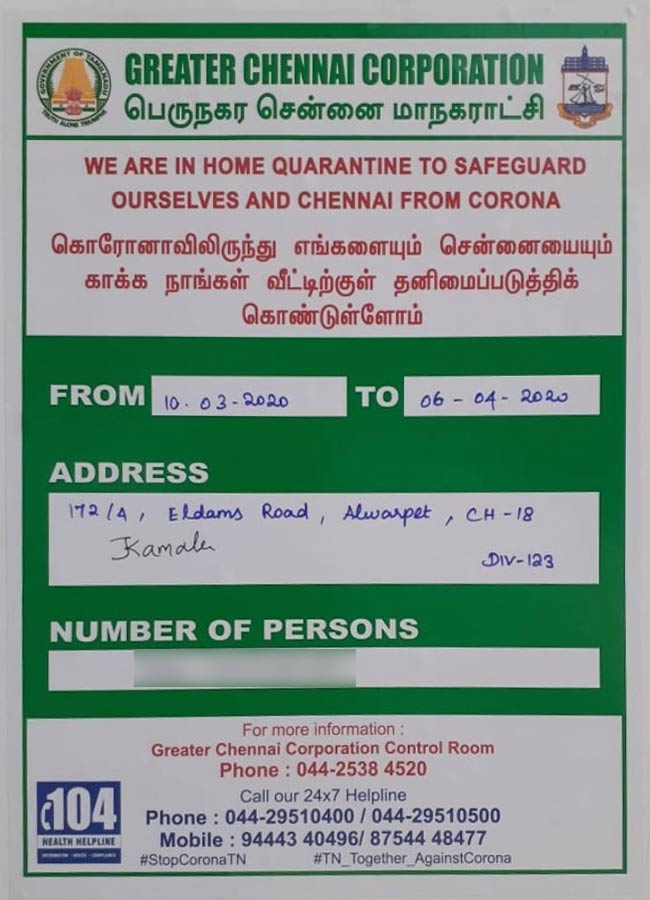 GOVERNMENT OF TAMILNADU
TRUTH ALONE TRIUMPHS
GREATER CHENNAI CORPORATION
பெருநகர சென்னை மாநகராட்சி
WE ARE IN HOME QUARANTINE TO SAFEGUARD
OURSELVES AND CHENNAI FROM CORONA
கொரோனாவிலிருந்து எங்களையும் சென்னையையும்
காக்க நாங்கள் வீட்டிற்குள் தனிமைப்படுத்திக்
கொண்டுள்ளோம்
FROM 10.03-2020 TO 06-04-2020
ADDRESS
172/A, Eldams Road, Alwarpet, CH-18
DIV-123
NUMBER OF PERSONS
For more information :
Greater Chennai Corporation Control Room
Phone : 044-2538 4520
Call our 24x7 Helpline
Phone : 044-29510400 / 044-29510500
Mobile : 94443 40496/ 87544 48477
104
HEALTH HELPLINE
INFORMATION - ADVICE - COMPLAINTS
#StopCoronaTN #TN_Together_AgainstCorona